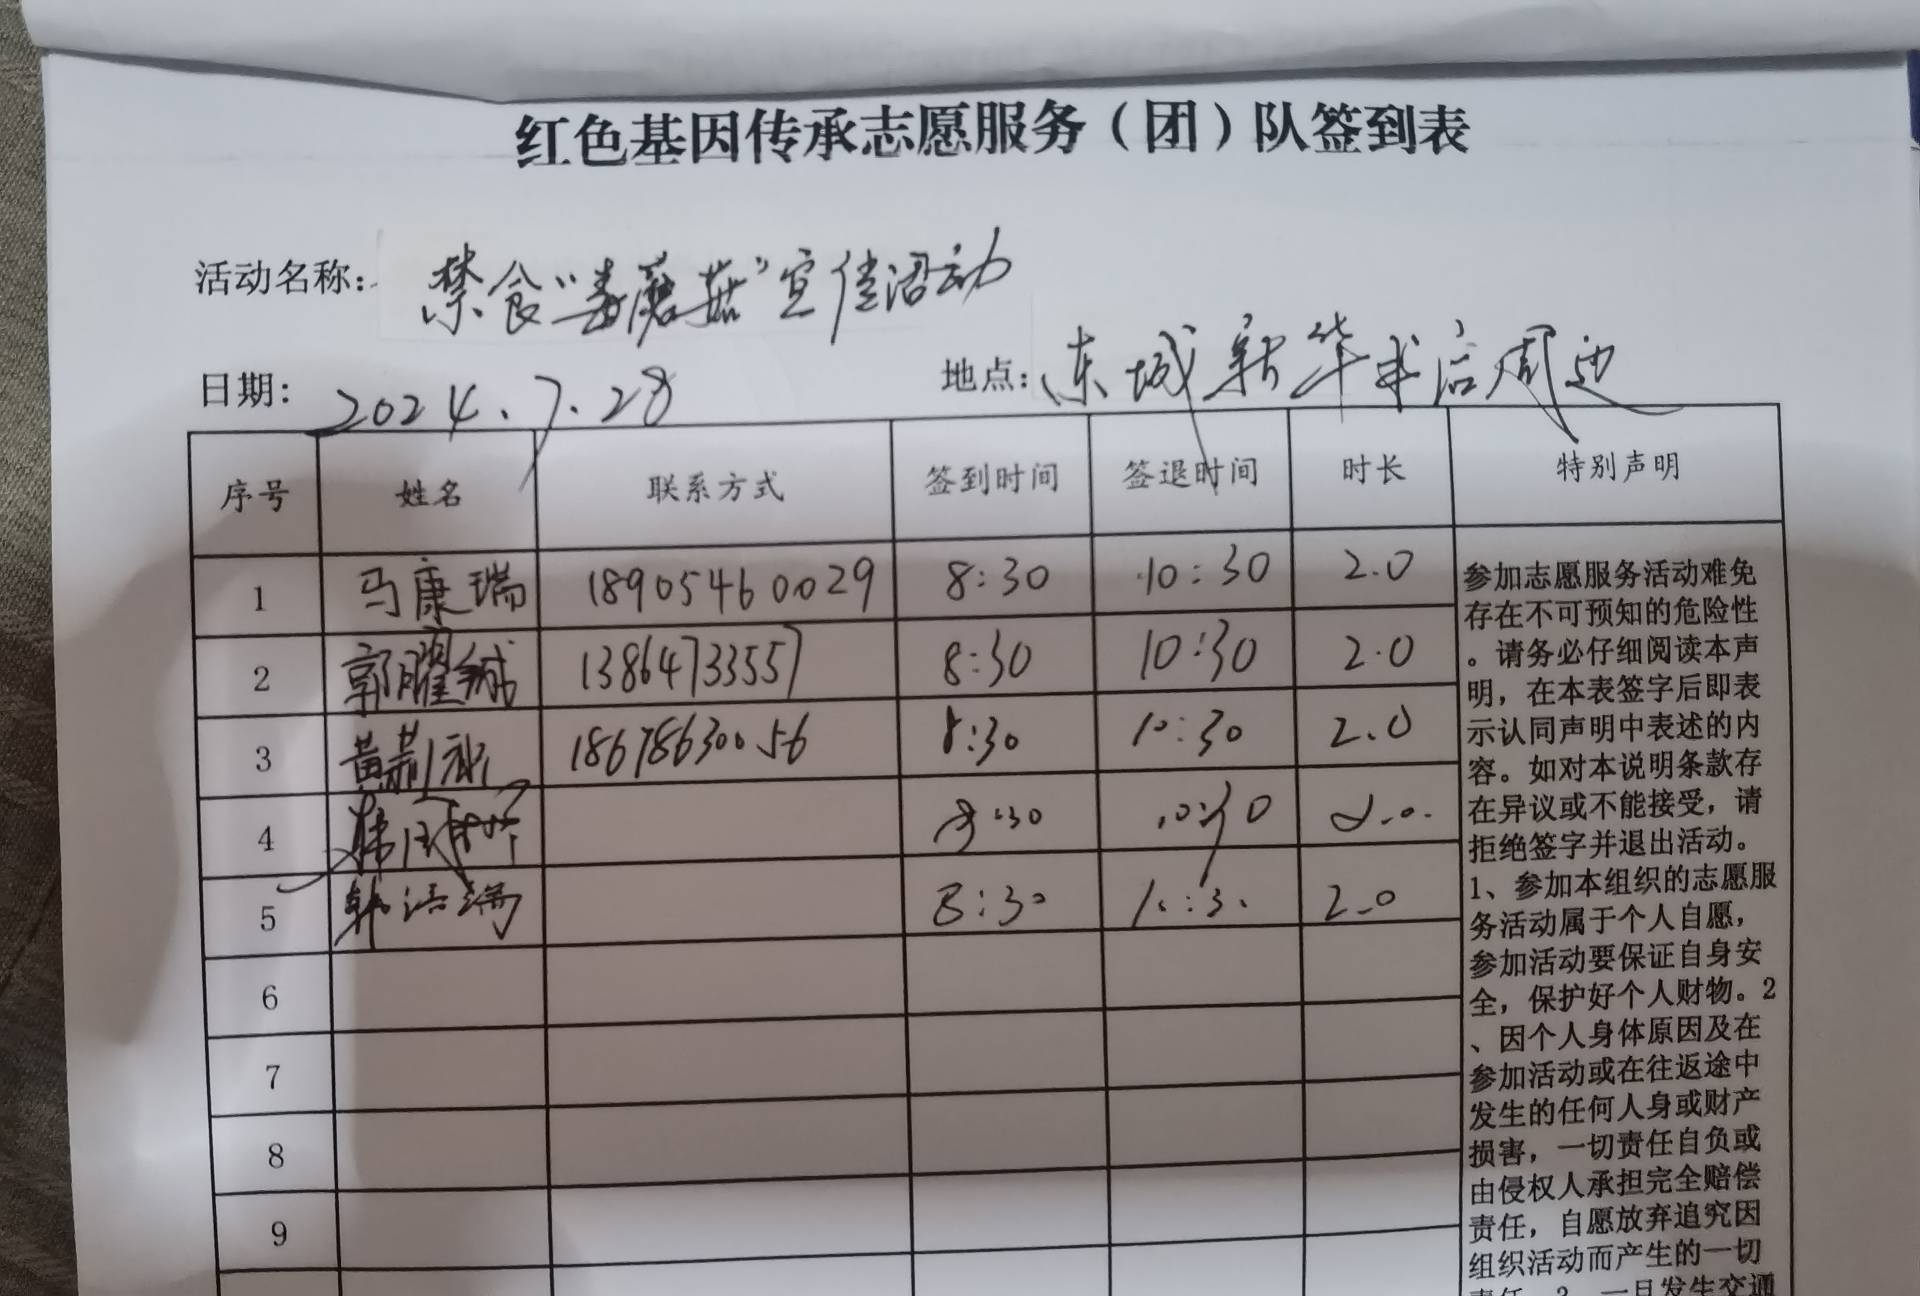 红色基因传承志愿服务（团）队签到表
活动名称：禁食“毒蘑菇”宣传活动
日期：2024.7.28 地点：东城新华书店周边
序号 姓名 联系方式 签到时间 签退时间 时长 特别声明
1 马康瑞 18905460029 8:30 10:30 2.0
2 郭曜 13864733557 8:30 10:30 2.0
3 黄 18678630056 8:30 10:30 2.0
4 8:30 10:30 2.0
5 韩洁瑞 8:30 10:30 2.0
6
7
8
9
参加志愿服务活动难免
存在不可预知的危险性
。请务必仔细阅读本声
明，在本表签字后即表
示认同声明中表述的内
容。如对本说明条款存
在异议或不能接受，请
拒绝签字并退出活动。
1、参加本组织的志愿服
务活动属于个人自愿，
参加活动要保证自身安
全，保护好个人财物。2
、因个人身体原因及在
参加活动或在往返途中
发生的任何人身或财产
损害，一切责任自负或
由侵权人承担完全赔偿
责任，自愿放弃追究因
组织活动而产生的一切
责任。3、一旦发生交通